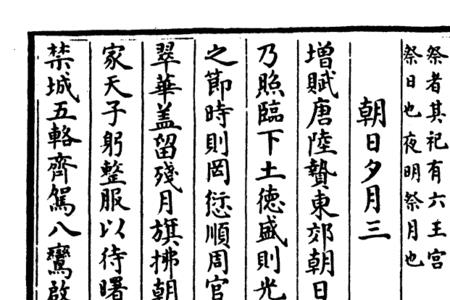 祭者其祀有六王宮
祭日也夜明祭月也
朝日夕月三
增賦唐陸贄東郊朝日
乃照臨下土德盛則光
之節時則罔愆順周官
翠華盖留殘月旗拂朝
家天子躬整服以待曙
禁城五輅齊駕八鸞啟